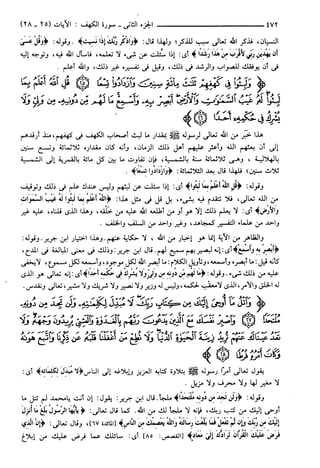 ٤٧٢ الجزء الثاني ـ سورة الكهف : الآيات (٢٥ - ٢٨)
النسيان، فذكر الله تعالى سبب للذكر؛ ولهذا قال: ﴿وَاذْكُر رَّبَّكَ إِذَا نَسِيتَ﴾. وقوله: ﴿وَقُلْ عَسَىٰ
أَن يَهْدِيَنِ رَبِّي لِأَقْرَبَ مِنْ هَٰذَا رَشَدًا﴾ أي: إذا سئلت عن شيء لا تعلمه، فاسأل الله فيه، وتوجه إليه
في أن يوفقك للصواب والرشد في ذلك، وقيل في تفسيره غير ذلك، والله أعلم.
﴿وَلَبِثُوا فِي كَهْفِهِمْ ثَلَاثَ مِائَةٍ سِنِينَ وَازْدَادُوا تِسْعًا ﴿٢٥﴾ قُلِ اللَّهُ أَعْلَمُ بِمَا
لَبِثُوا لَهُ غَيْبُ السَّمَاوَاتِ وَالْأَرْضِ أَبْصِرْ بِهِ وَأَسْمِعْ مَا لَهُم مِّن دُونِهِ مِن وَلِيٍّ وَلَا
يُشْرِكُ فِي حُكْمِهِ أَحَدًا ﴿٢٦﴾
هذا خبر من الله تعالى لرسوله ﷺ بمقدار ما لبث أصحاب الكهف في كهفهم، منذ أرقدهم
إلى أن بعثهم الله وأعثر عليهم أهل ذلك الزمان، وأنه كان مقداره ثلاثمائة وتسع سنين
بالهلالية، وهي ثلاثمائة سنة بالشمسية، فإن تفاوت ما بين كل مائة بالقمرية إلى الشمسية
ثلاث سنين، فلهذا قال بعد الثلاثمائة: ﴿وَازْدَادُوا تِسْعًا﴾.
وقوله: ﴿قُلِ اللَّهُ أَعْلَمُ بِمَا لَبِثُوا﴾ أي: إذا سئلت عن لبثهم وليس عندك علم في ذلك وتوقيف
من الله تعالى، فلا تتقدم فيه بشيء، بل قل في مثل هذا: ﴿اللَّهُ أَعْلَمُ بِمَا لَبِثُوا لَهُ غَيْبُ السَّمَاوَاتِ
وَالْأَرْضِ﴾ أي: لا يعلم ذلك إلا هو أو من أطلعه الله عليه من خلقه، وهذا الذي قلناه، عليه غير
واحد من علماء التفسير كمجاهد، وغير واحد من السلف والخلف.
والظاهر من الآية إنما هو إخبار من الله، لا حكاية عنهم. وهذا اختيار ابن جرير. وقوله:
﴿أَبْصِرْ بِهِ وَأَسْمِعْ﴾ أي: إنه لبصير بهم سميع لهم. قال ابن جرير: وذلك في معنى المبالغة في المدح،
كأنه قيل: ما أبصره وأسمعه، وتأويل الكلام: ما أبصر الله لكل موجود، وأسمعه لكل مسموع، لا يخفى
عليه من ذلك شيء. وقوله: ﴿مَا لَهُم مِّن دُونِهِ مِن وَلِيٍّ وَلَا يُشْرِكُ فِي حُكْمِهِ أَحَدًا﴾ أي: إنه تعالى هو الذي
له الخلق والأمر، الذي لا معقب لحكمه، وليس له وزير ولا نصير ولا شريك ولا مشير، تعالى وتقدس.
﴿وَاتْلُ مَا أُوحِيَ إِلَيْكَ مِن كِتَابِ رَبِّكَ لَا مُبَدِّلَ لِكَلِمَاتِهِ وَلَن تَجِدَ مِن دُونِهِ
مُلْتَحَدًا ﴿٢٧﴾ وَاصْبِرْ نَفْسَكَ مَعَ الَّذِينَ يَدْعُونَ رَبَّهُم بِالْغَدَاةِ وَالْعَشِيِّ يُرِيدُونَ وَجْهَهُ وَلَا
تَعْدُ عَيْنَاكَ عَنْهُمْ تُرِيدُ زِينَةَ الْحَيَاةِ الدُّنْيَا وَلَا تُطِعْ مَنْ أَغْفَلْنَا قَلْبَهُ عَن ذِكْرِنَا وَاتَّبَعَ هَوَاهُ
وَكَانَ أَمْرُهُ فُرُطًا ﴿٢٨﴾
يقول تعالى آمراً رسوله ﷺ بتلاوة كتابه العزيز وإبلاغه إلى الناس ﴿لَا مُبَدِّلَ لِكَلِمَاتِهِ﴾ أي:
لا مغير لها ولا محرف ولا مزيل.
وقوله: ﴿وَلَن تَجِدَ مِن دُونِهِ مُلْتَحَدًا﴾ ملجأ. قال ابن جرير: يقول: إن أنت يا محمد لم تتل ما
أوحي إليك من كتاب ربك، فإنه لا ملجأ لك من الله. كما قال تعالى: ﴿يَا أَيُّهَا الرَّسُولُ بَلِّغْ مَا أُنزِلَ
إِلَيْكَ مِن رَّبِّكَ وَإِن لَّمْ تَفْعَلْ فَمَا بَلَّغْتَ رِسَالَتَهُ وَاللَّهُ يَعْصِمُكَ مِنَ النَّاسِ﴾ [المائدة: ٦٧]، وقال تعالى: ﴿إِنَّ الَّذِي
فَرَضَ عَلَيْكَ الْقُرْآنَ لَرَادُّكَ إِلَىٰ مَعَادٍ﴾ [القصص: ٨٥] أي: سائلك عما فرض عليك من إبلاغ